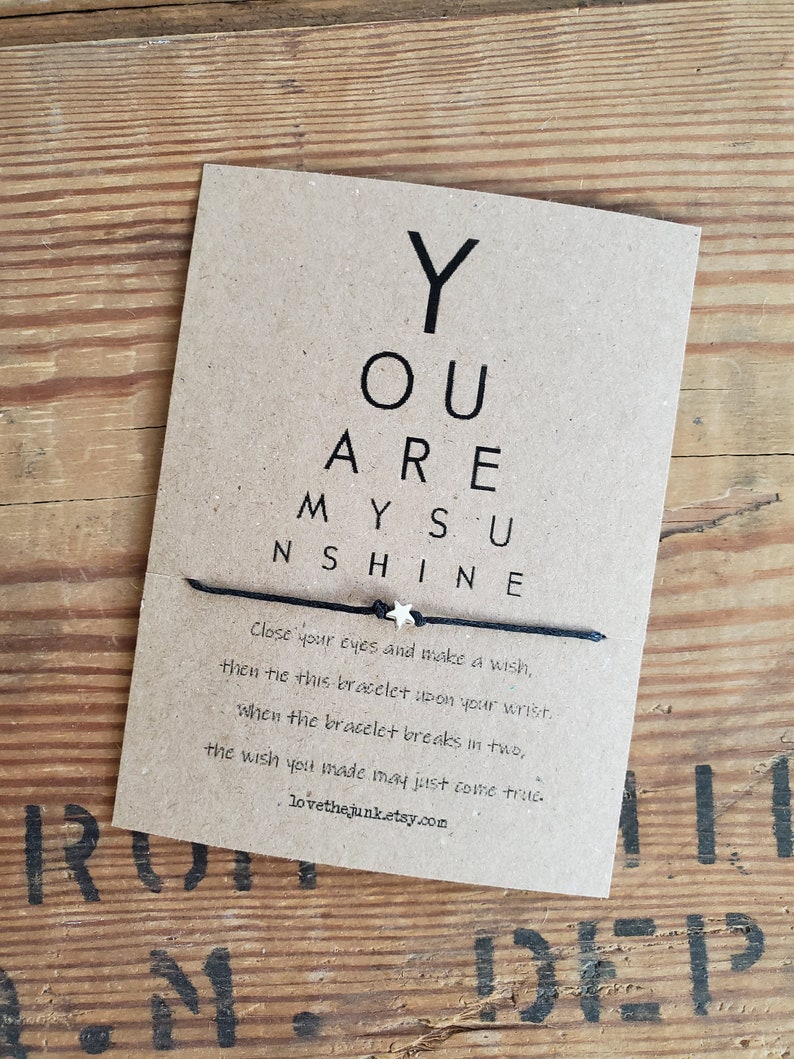 Y
OU
ARE
MYSU
NSHINE
Close your eyes and make a wish,
then tie this bracelet upon your wrist.
When the bracelet breaks in two,
the wish you made may just come true.
lovethejunk.etsy.com
DEP